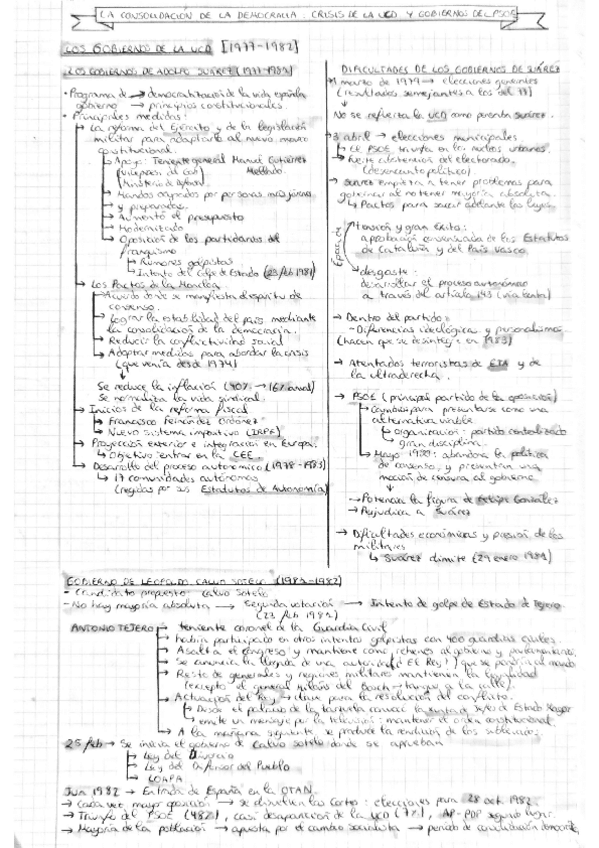 LA CONSOLIDACIÓN DE LA DEMOCRACIA. CRISIS DE LA UCD Y GOBIERNOS DEL PSOE
LOS GOBIERNOS DE LA UCD [1977-1982]
LOS GOBIERNOS DE ADOLFO SUÁREZ (1977-1981)
· Programa de → democratización de la vida española
gobierno → principios constitucionales.
· Principales medidas:
→ La reforma del Ejército y de la legislación
militar para adaptarlo al nuevo marco
constitucional.
→ Apoyo: Teniente general Manuel Gutiérrez
Mellado.
→ Mandos ocupados por personas más jóvenes
y preparadas.
→ Aumentó el presupuesto
→ Modernizado
→ Oposición de los partidarios del
franquismo
→ Rumores golpistas
→ Intento del Golpe de Estado (23 feb 1981)
→ Los Pactos de la Moncloa.
Acuerdo donde se manifiesta el espíritu de
consenso.
→ Lograr la estabilidad del país mediante
la consolidación de la democracia.
→ Reducir la conflictividad social
→ Adoptar medidas para abordar la crisis
(que venía desde 1974)
Se reduce la inflación (40% → 16% anual)
Se normaliza la vida sindical.
→ Inicios de la reforma fiscal
→ Francisco Fernández Ordóñez
→ Nuevo sistema impositivo (IRPF)
→ Proyección exterior e integración en Europa.
→ Objetivo: entrar en la CEE.
→ Desarrollo del proceso autonómico (1978-1983)
→ 17 comunidades autónomas
(regidas por sus Estatutos de Autonomía)
DIFICULTADES DE LOS GOBIERNOS DE SUÁREZ
1 marzo de 1979 → elecciones generales
(resultados semejantes a los del 77)
No se refuerza la UCD como pretendía Suárez.
3 abril → elecciones municipales
→ El PSOE triunfa en los núcleos urbanos.
→ Fuerte abstención del electorado.
(desencanto político)
→ Suárez empieza a tener problemas para
gobernar al no tener mayoría absoluta
→ Pactos para sacar adelante las leyes.
Época de
tensión y gran éxito:
aprobación consensuada de los Estatutos
de Cataluña y del País Vasco.
desgaste:
desarrollar el proceso autonómico
a través del artículo 143 (vía lenta)
→ Dentro del partido:
- Diferencias ideológicas y personalismos
(hacen que se desintegre en 1983)
→ Atentados terroristas de ETA y de
la ultraderecha.
→ PSOE (principal partido de la oposición)
→ Cambios para presentarse como una
alternativa viable
→ organización: partido centralizado
gran disciplina.
→ Mayo 1980: abandona la política
de consenso y presentan una
moción de censura al gobierno
→ Potencia la figura de Felipe González
→ Perjudica a Suárez
→ Dificultades económicas y presión de los
militares
→ Suárez dimite (29 enero 1981)
GOBIERNO DE LEOPOLDO CALVO SOTELO (1981-1982)
- Candidato propuesto: Calvo Sotelo
- No hay mayoría absoluta → Segunda votación → Intento de golpe de Estado de Tejero
(23 feb 1981)
ANTONIO TEJERO → teniente coronel de la Guardia Civil
→ había participado en otros intentos golpistas con 400 guardias civiles.
→ Asalta el congreso y mantiene como rehenes al gobierno y parlamentarios.
→ Se anuncia la llegada de una autoridad (¿El Rey?) que se pondría al mando
→ Resto de generales y regiones militares mantienen la legalidad
(excepto el general Milans del Bosch: tanques a la calle).
→ Actuación del Rey → clave para la resolución del conflicto.
→ Desde el palacio de la Zarzuela convoca la Junta de Jefes de Estado Mayor
→ emite un mensaje por la televisión: mantener el orden constitucional.
→ A la mañana siguiente, se produce la rendición de los sublevados.
25 feb → Se inicia el gobierno de Calvo Sotelo donde se aprueban
→ Ley del Divorcio
→ Ley del Defensor del Pueblo
→ LOAPA
Jun 1982 → Entrada de España en la OTAN.
→ Cada vez mayor oposición → se disuelven las Cortes: elecciones para 28 oct. 1982.
→ Triunfo del PSOE (48%), casi desaparición de la UCD (7%), AP-PDP segundo lugar.
→ Mayoría de la población → apuesta por el cambio socialista → período de consolidación democrática.